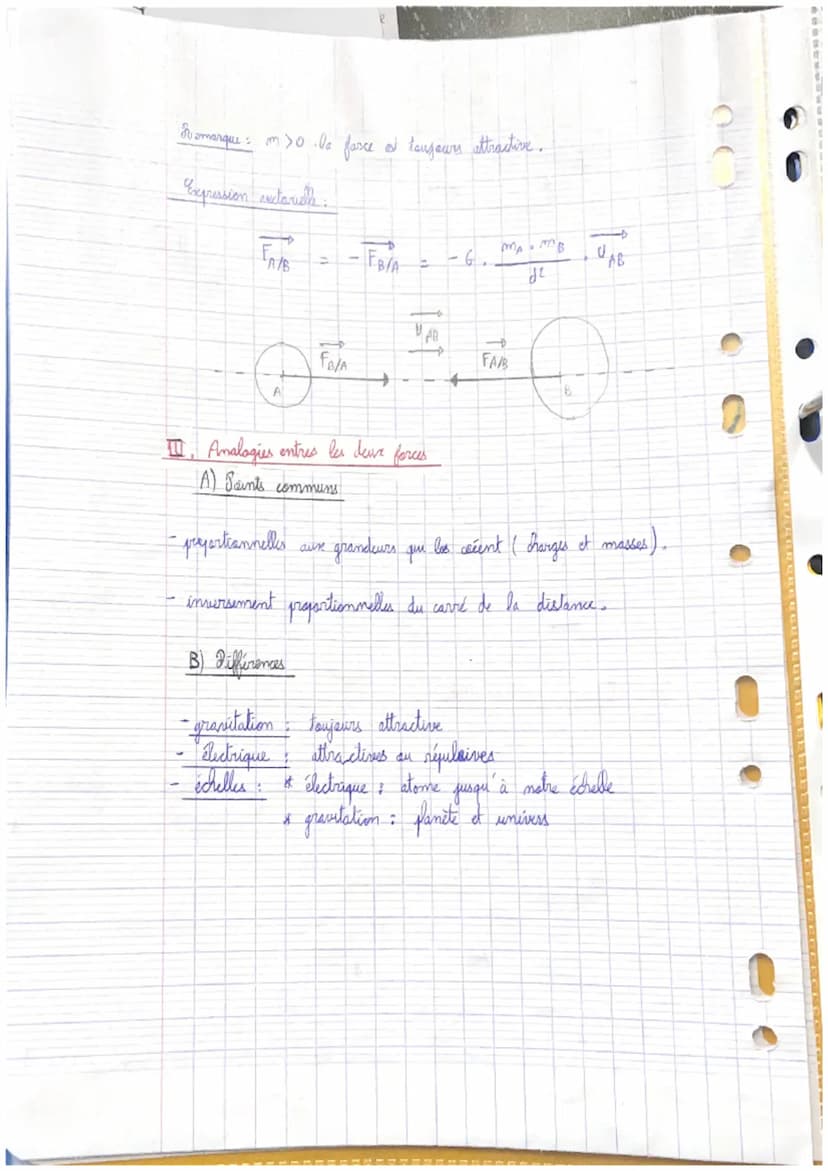 Remarque : m > 0 . la force est toujours attractive.
Expression vectorielle :
F A/B = - F B/A = - G . m A . m B / d² . U AB
U AB
F B/A
F A/B
A
B
III. Analogies entres les deux forces
A) Points communs
- proportionnelles aux grandeurs qui les créent ( charges et masses ).
- inversement proportionnelles du carré de la distance.
B) Différences
- gravitation : toujours attractive
- électrique : attractives ou répulsives
- échelles : * électrique : atome jusqu'à notre échelle
* gravitation : planète et univers